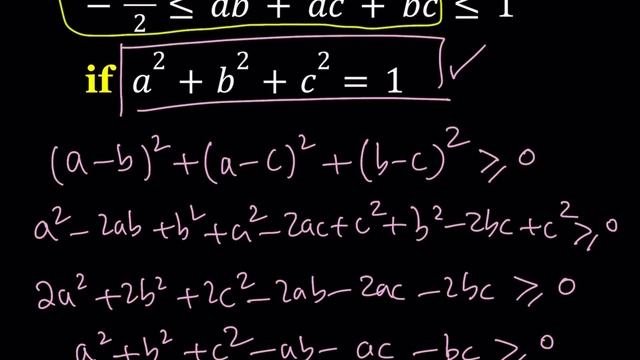 − — 2 ≤ ab + ac + bc ≤ 1
if a² + b² + c² = 1
(a-b)² + (a-c)² + (b-c)² ≥ 0
a² - 2ab + b² + a² - 2ac + c² + b² - 2bc + c² ≥ 0
2a² + 2b² + 2c² - 2ab - 2ac - 2bc ≥ 0
a² + b² + c² - ab - ac - bc ≥ 0